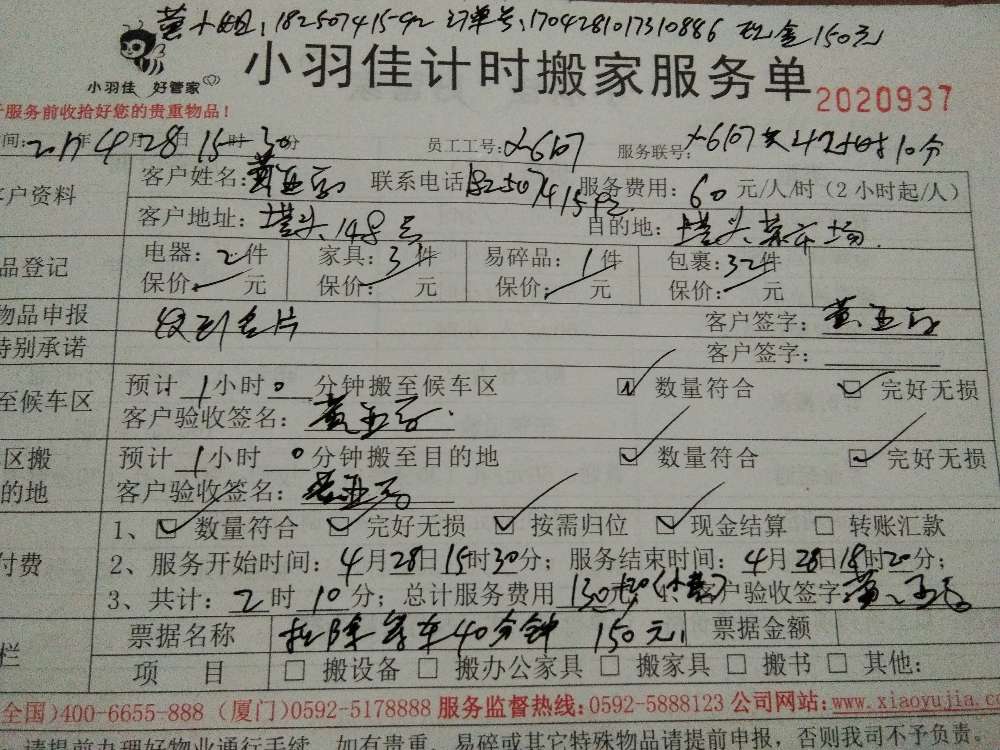 黄小姐，18250741542 订单号，1704281017310886 现金150元
小羽佳 好管家
小羽佳计时搬家服务单
2020937
服务前收拾好您的贵重物品！
间：2017年4月28日15时30分 员工工号：X6107 服务联号：X6107 2小时10分
客户资料 客户姓名：黄亚 联系电话 18250741542 服务费用：60元/人/时（2小时起/人）
客户地址：塔头148号 目的地：塔头菜市场
品登记 电器：2件 家具：3件 易碎品：1件 包裹：32件
保价： 元 保价： 元 保价： 元 保价： 元
物品申报 收到名片 客户签字：黄亚
特别承诺 客户签字：
至候车区 预计1小时0分钟搬至候车区 数量符合 完好无损
客户验收签名：黄亚
区搬 预计1小时0分钟搬至目的地 数量符合 完好无损
的地 客户验收签名：黄亚
1、数量符合 完好无损 按需归位 现金结算 转账汇款
付费 2、服务开始时间：4月28日15时30分；服务结束时间：4月28日18时20分；
3、共计：2时10分；总计服务费用 130 客户验收签字 黄亚
栏 票据名称 扣除等车40分钟 150元 票据金额
项 目 搬设备 搬办公家具 搬家具 搬书 其他：
全国）400-6655-888（厦门）0592-5178888 服务监督热线：0592-5888123 公司网站：www.xiaoyujia.c
请提前办理好物业通行手续，如有贵重、易碎或其它特殊物品请提前申报，否则我司不予负责。